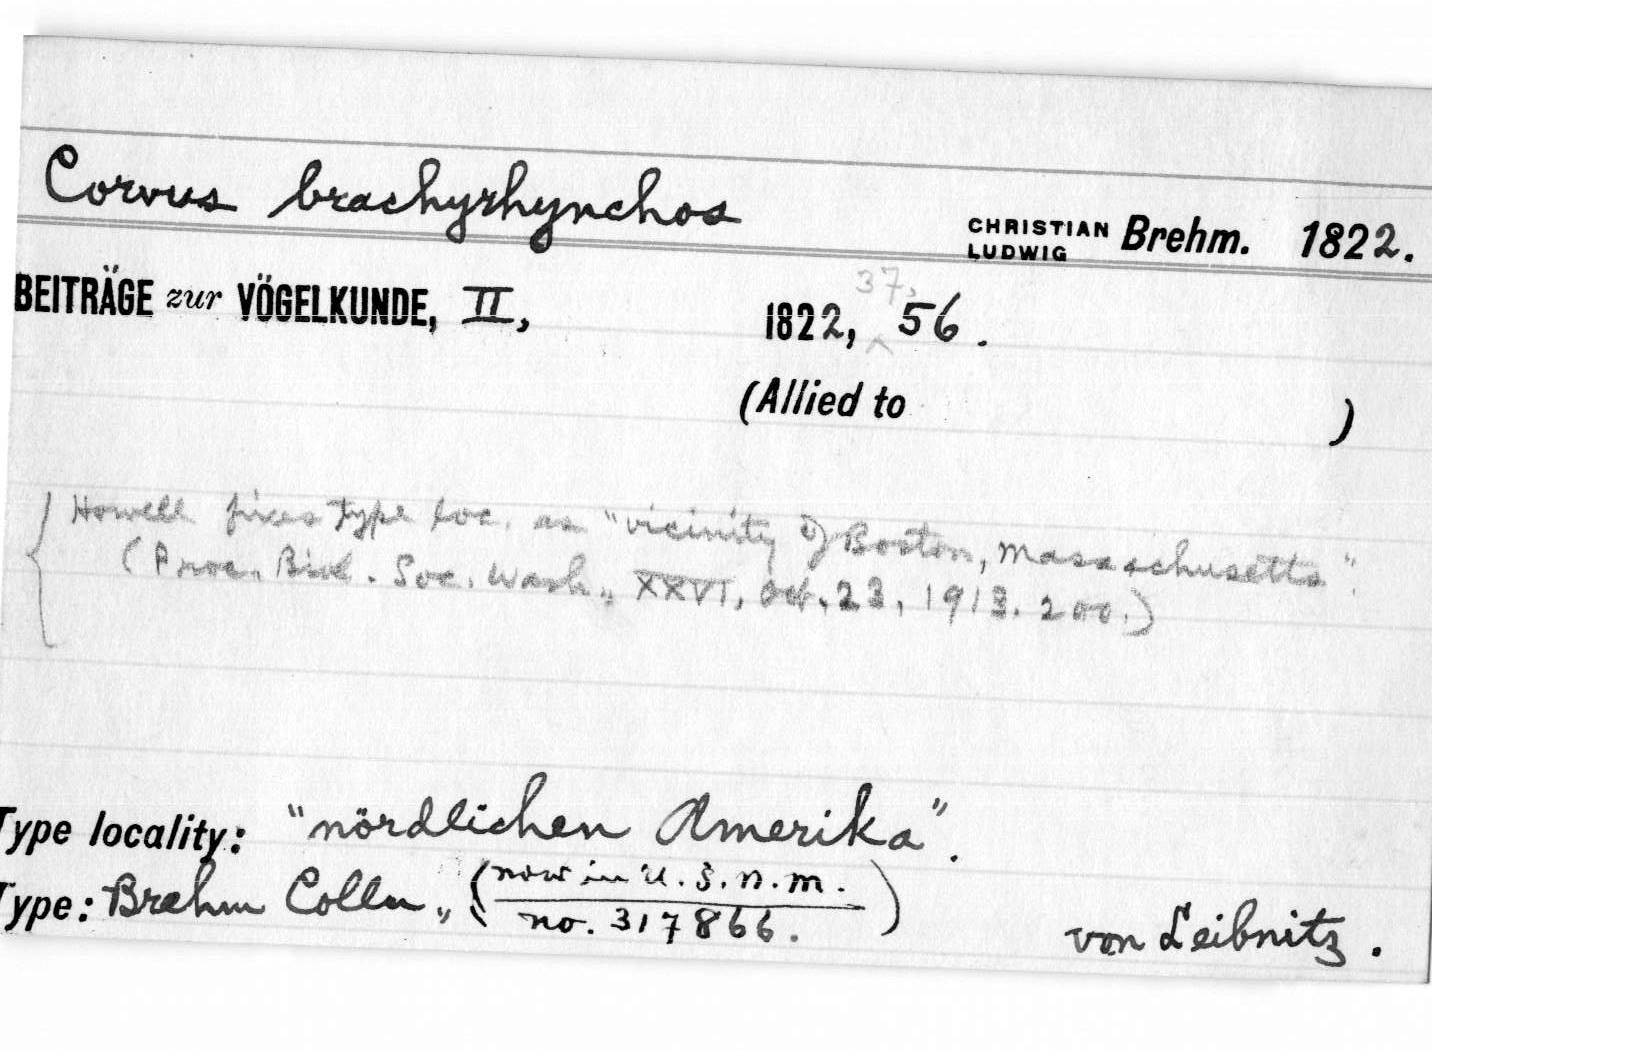 Corvus brachyrhynchos CHRISTIAN LUDWIG Brehm. 1822.
BEITRÄGE zur VÖGELKUNDE, II, 1822, 37, 56.
(Allied to )
Howell fixes type loc. as "vicinity of Boston, Massachusetts".
(Proc. Biol. Soc. Wash., XXVI, Oct. 23, 1913. 200.)
Type locality: "nördlichen Amerika".
Type: Brehm Colln., (now in U.S.N.M. no. 317866.) von Leibnitz.